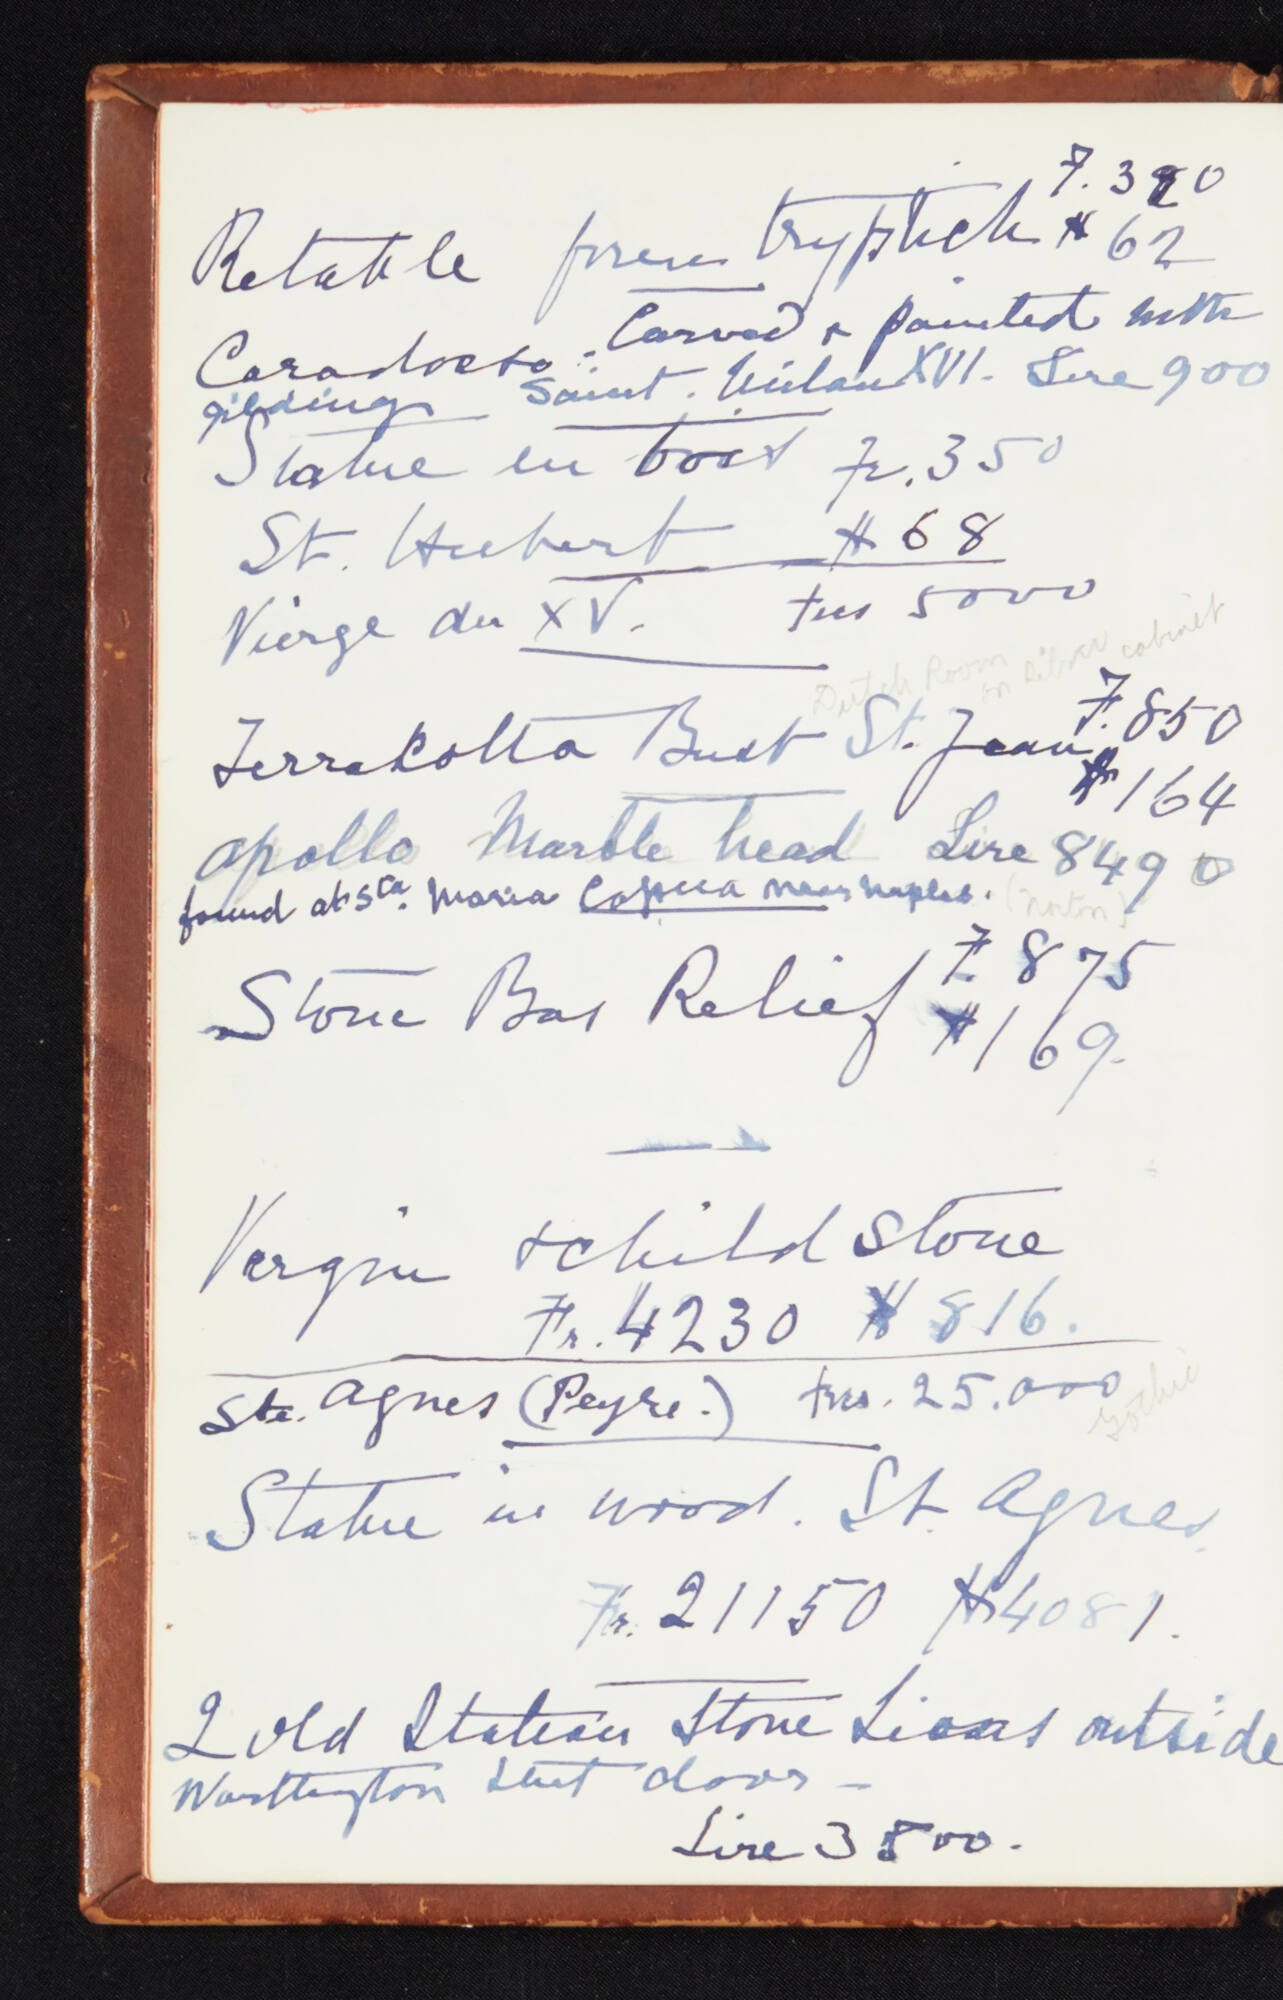 F. 320
Retable from tryptich # 62
Caradosso. Carved & painted with
gilding Saint. Milan XVI. Lire 900
Statue en bois Fr. 350
St. Hubert # 68
Vierge du XV. frcs 5000
Dutch Room
on silver cabinet
Terrakotta Bust St. Jean F. 850
# 164
Apollo Marble head Lire 8490
found at Sta. Maria Capua near Naples. (Norton)
Stone Bas Relief F. 875
# 169.
Vergin & child Stone
Fr. 4230 # 816.
Ste. Agnes (Peyre.) frcs. 25.000
Gothic
Statue in wood. St. Agnes
Fr. 21150 # 4081.
2 old Italian Stone Lions outside
Worthington Street door -
Lire 3500.